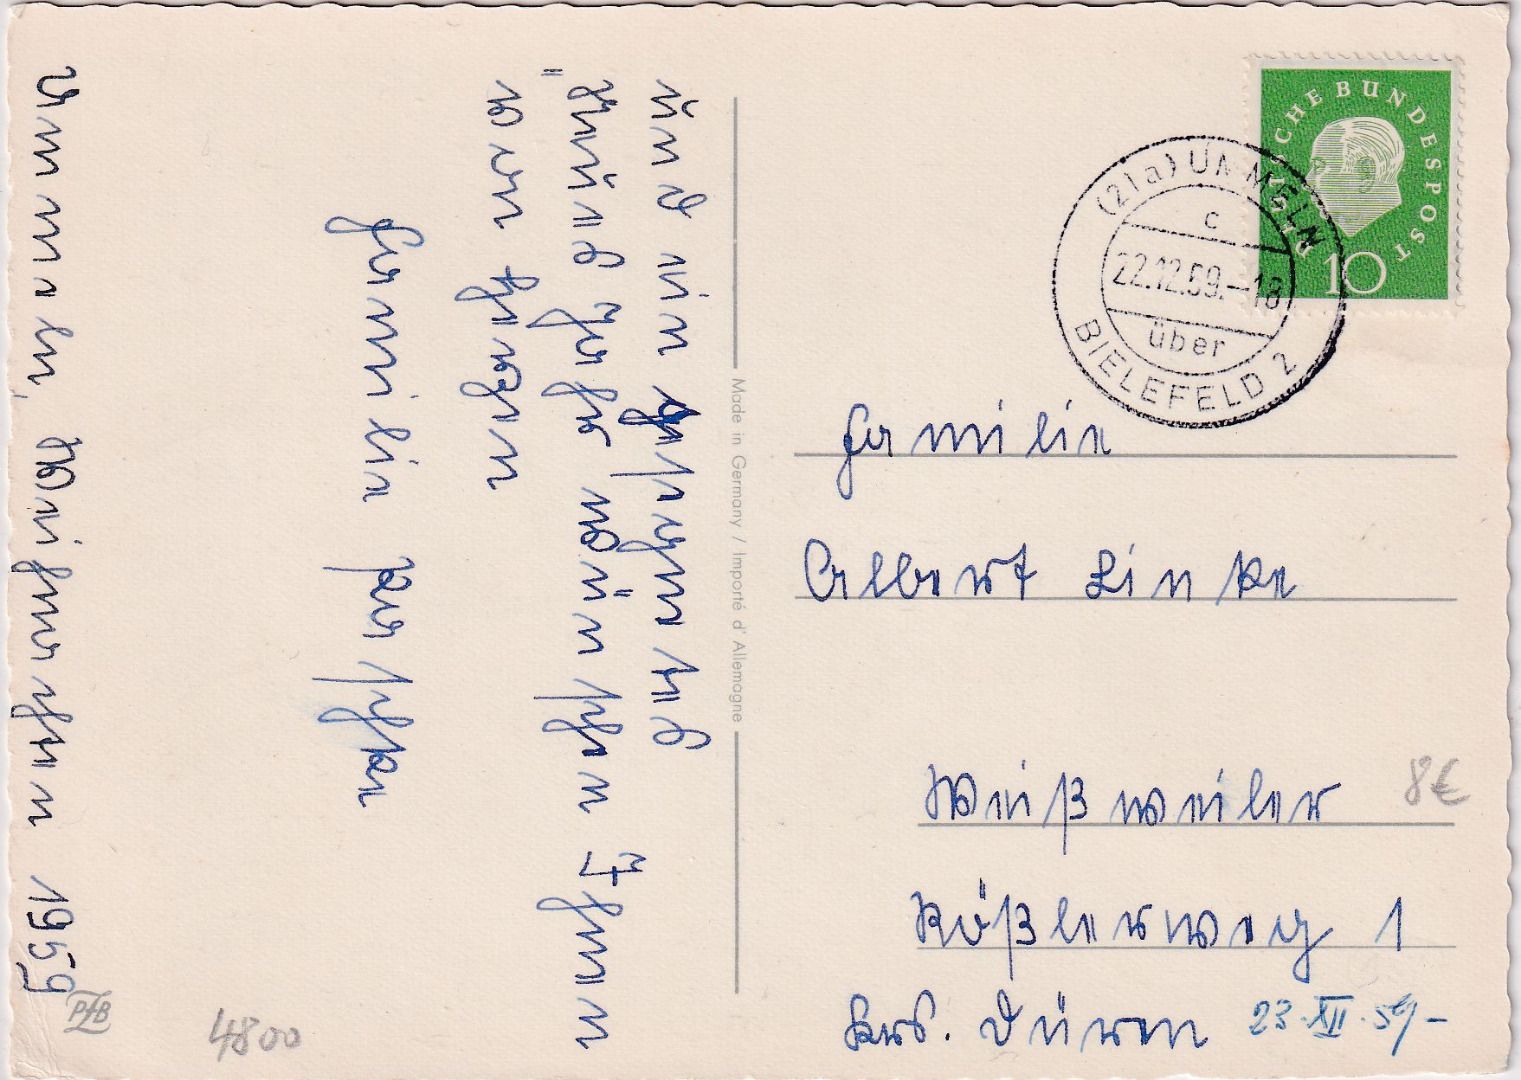 und ein gesegnetes
neues Jahr wünschen Ihnen
von Herzen
Familie
Ummeln, Weihnachten 1959
Made in Germany / Importé d'Allemagne
DEUTSCHE BUNDESPOST
10
(21a) UMMELN
c
22.12.59.-18
über
BIELEFELD 2
Familie
Albert Linke
Weißweiler
8€
Rößlerweg 1
Krs. Düren
23.XII.59-
4800
PZB